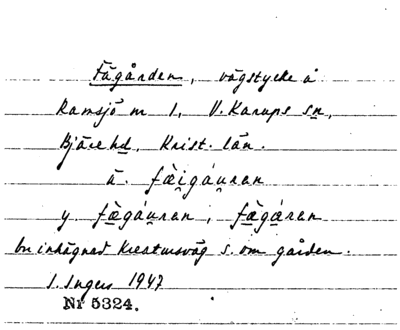 Fägården, vägstycke å
Ramsjö nr 1, V. Karups sn,
Bjäre hd, Krist. län.
ä. fæ̀i̯gáu̯ran
y. fæ̀gáu̯ran, fæ̀gáran
bv inhägnad kreatursväg s. om gården.
I. Ingers 1947
Nr 5324.